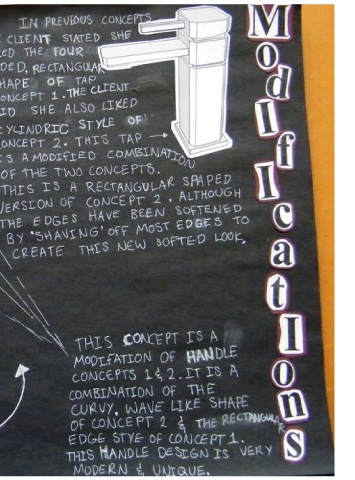 IN PREVIOUS CONCEPTS
CLIENT STATED SHE
THE FOUR
RECTANGULAR
OF TAP
1. THE CLIENT
SHE ALSO LIKED
CYLINDRIC STYLE OF
2. THIS TAP
IS A MODIFIED COMBINATION
OF THE TWO CONCEPTS.
THIS IS A RECTANGULAR SPAPED
VERSION OF CONCEPT 2. ALTHOUGH
THE EDGES HAVE BEEN SOFTENED
BY 'SHAVING' OFF MOST EDGES TO
CREATE THIS NEW SOFTED LOOK.
ModIfIcatIons
THIS CONCEPT IS A
MODIFATION OF HANDLE
CONCEPTS 1 & 2. IT IS A
COMBINATION OF THE
CURVY, WAVE LIKE SHAPE
OF CONCEPT 2 & THE RECTANGULAR
EDGE STYE OF CONCEPT 1.
THIS HANDLE DESIGN IS VERY
MODERN & UNIQUE.